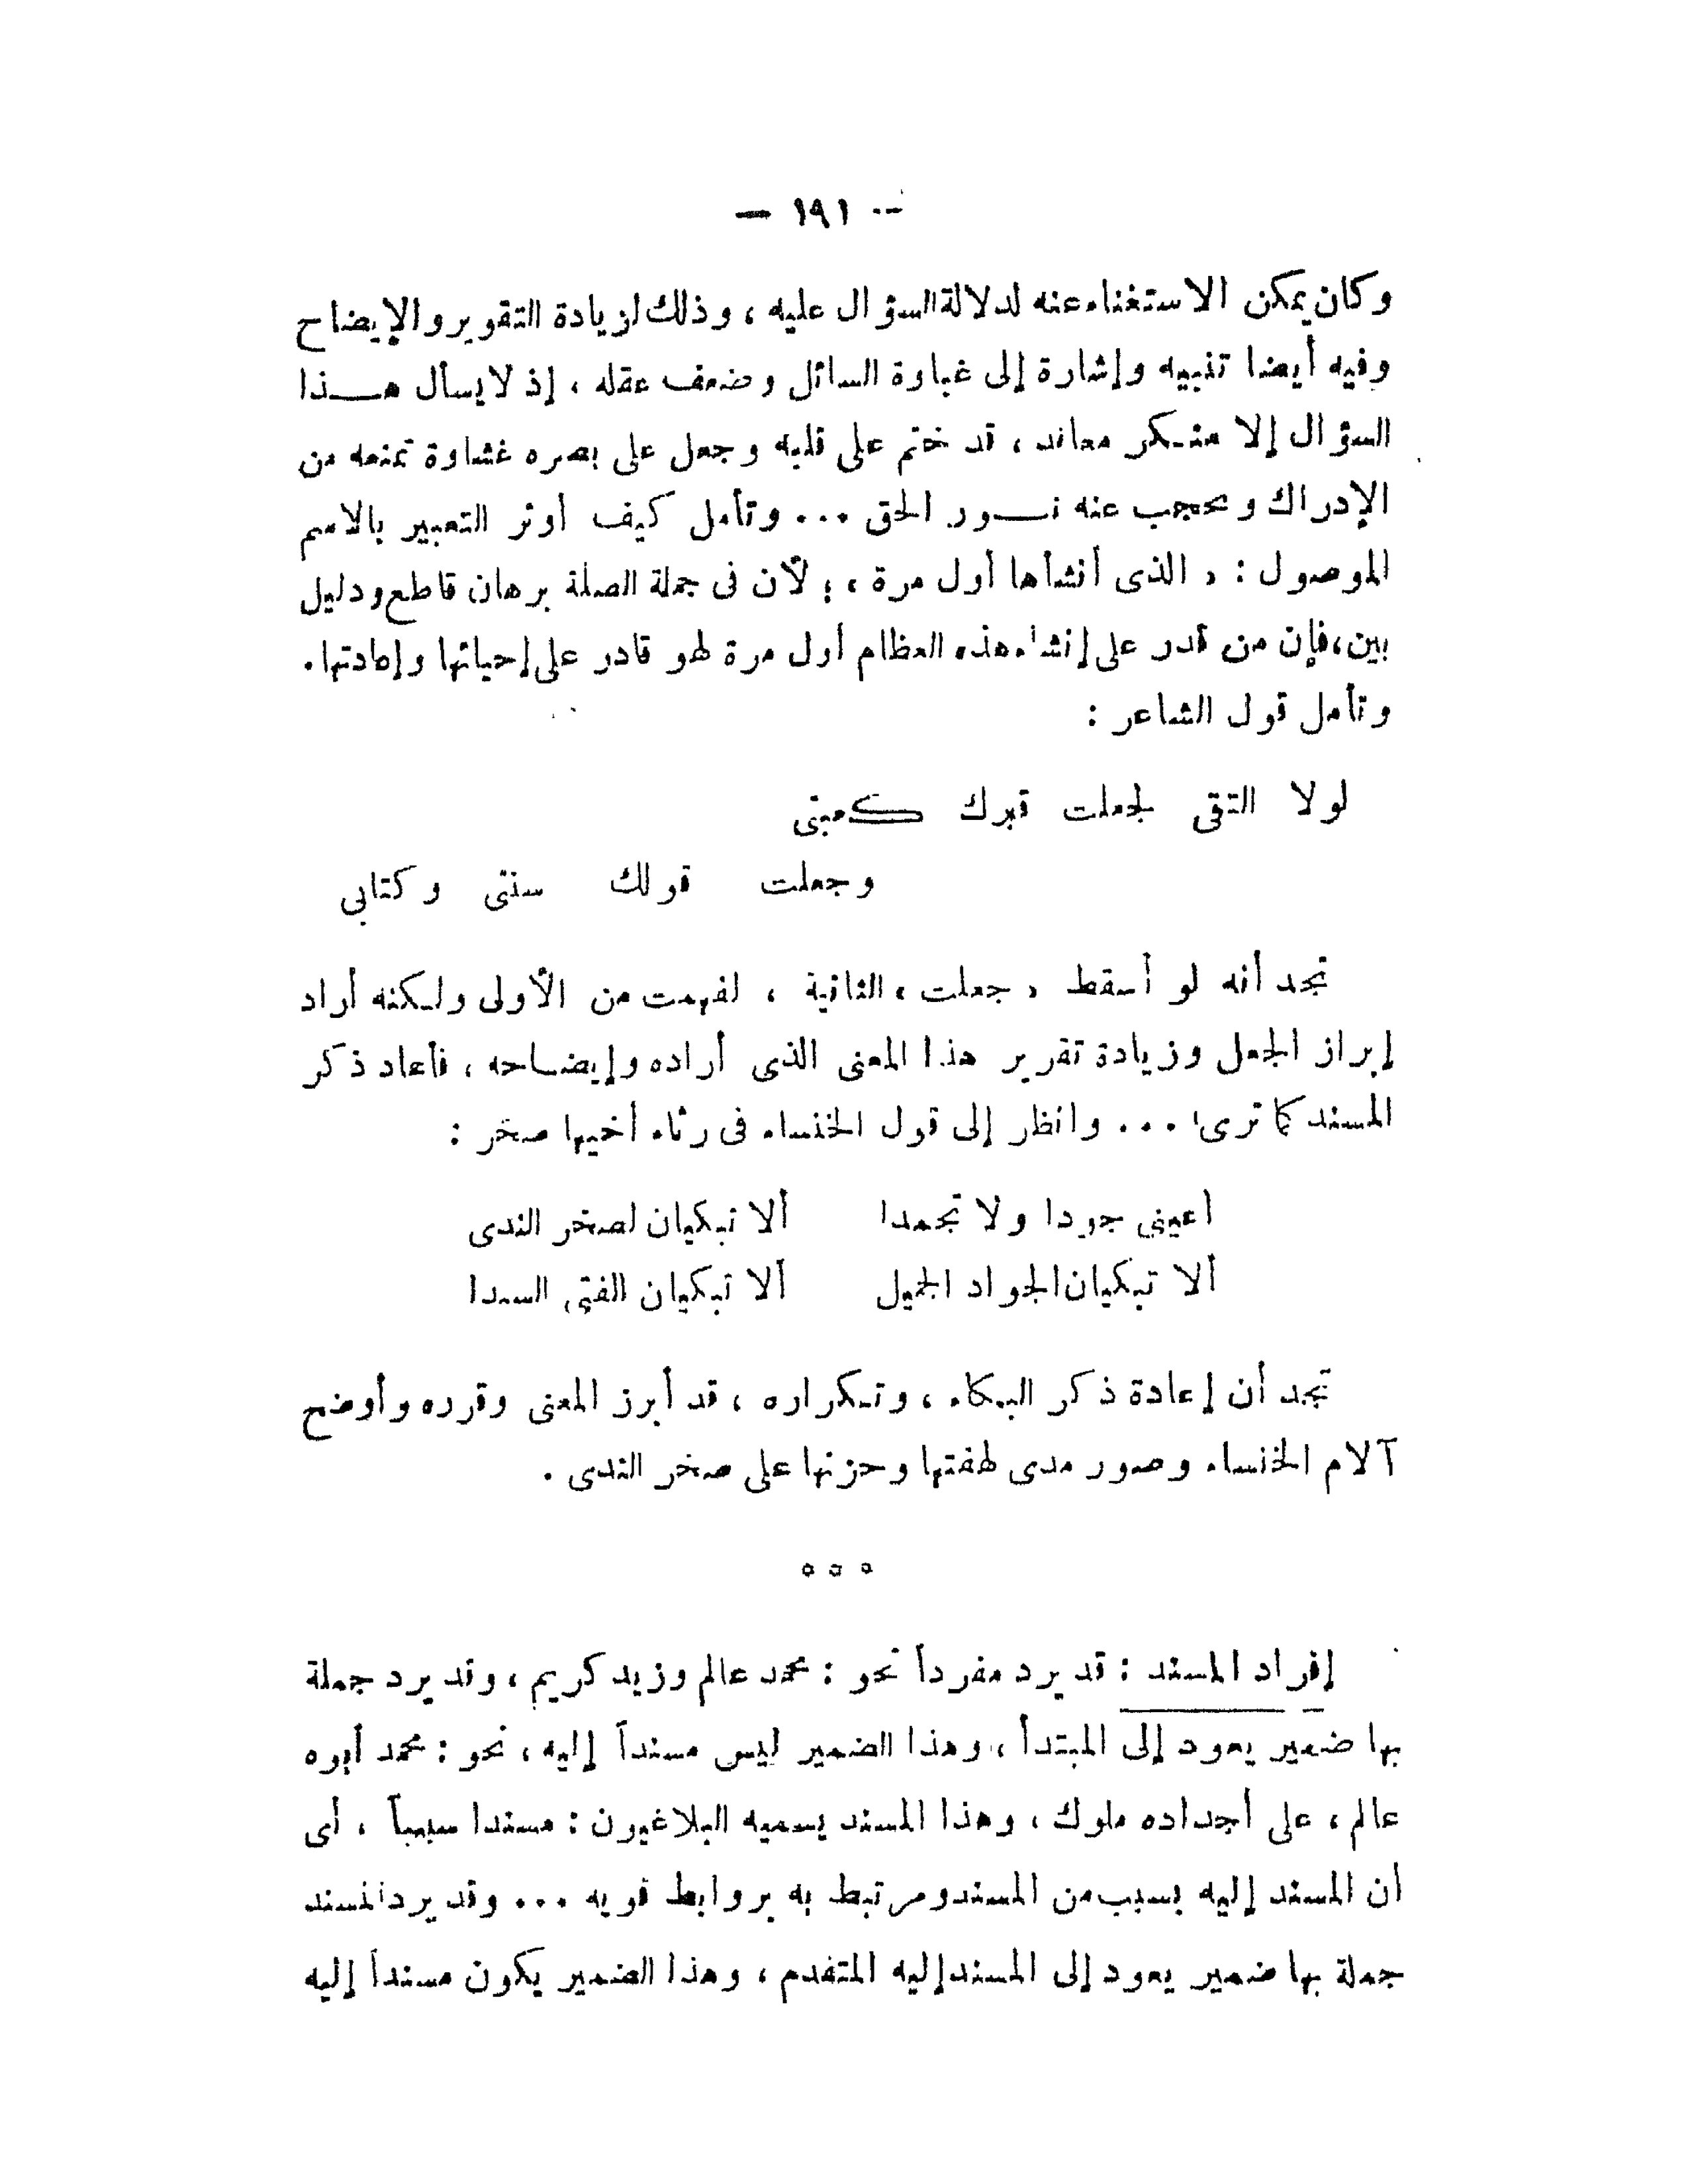 — ١٩١ —
وكان يمكن الاستغناء عنه لدلالة السؤال عليه ، وذلك لزيادة التقوير والإيضاح
وفيه أيضا تنبيه وإشارة إلى غباوة السائل وضعف عقله ، إذ لا يسأل هــذا
السؤال إلا منكر معاند ، قد ختم على قلبه وجعل على بصره غشاوة تمنعه من
الإدراك وتحجب عنه نــور الحق ... وتأمل كيف أوثر التعبير بالاسم
الموصول : « الذى أنشأها أول مرة » ؛ لأن فى جملة الصلة برهان قاطع ودليل
بين، فإن من قدر على إنشاء هذه العظام أول مرة لهو قادر على إحيائها وإعادتها.
وتأمل قول الشاعر :
لولا التقى لجعلت قبرك كعبتى
وجعلت قولك سنتى وكتابى
تجد أنه لو أسقط « جعلت » الثانية ، لفهمت من الأولى ولكنه أراد
إبراز الجعل وزيادة تقرير هذا المعنى الذى أراده وإيضاحه ، فأعاد ذكر
المسند كما ترى ... وانظر إلى قول الخنساء فى رثاء أخيها صخر :
أعينى جودا ولا تجمدا ألا تبكيان لصخر الندى
ألا تبكيان الجواد الجميل ألا تبكيان الفتى السيدا
تجد أن إعادة ذكر البكاء ، وتكراره ، قد أبرز المعنى وقرره وأوضح
آلام الخنساء وصور مدى لهفتها وحزنها على صخر الندى .
° ° °
إفراد المسند : قد يرد مفرداً نحو : محمد عالم وزيد كريم ، وقد يرد جملة
بها ضمير يعود إلى المبتدأ ، وهذا الضمير ليس مسنداً إليه ، نحو : محمد أبوه
عالم ، على أجداده ملوك ، وهذا المسند يسميه البلاغيون : مسندا سببياً ، أى
أن المسند إليه بسبب من المسند ومرتبط به بروابط قويه ... وقد يرد المسند
جملة بها ضمير يعود إلى المسند إليه المتقدم ، وهذا الضمير يكون مسنداً إليه